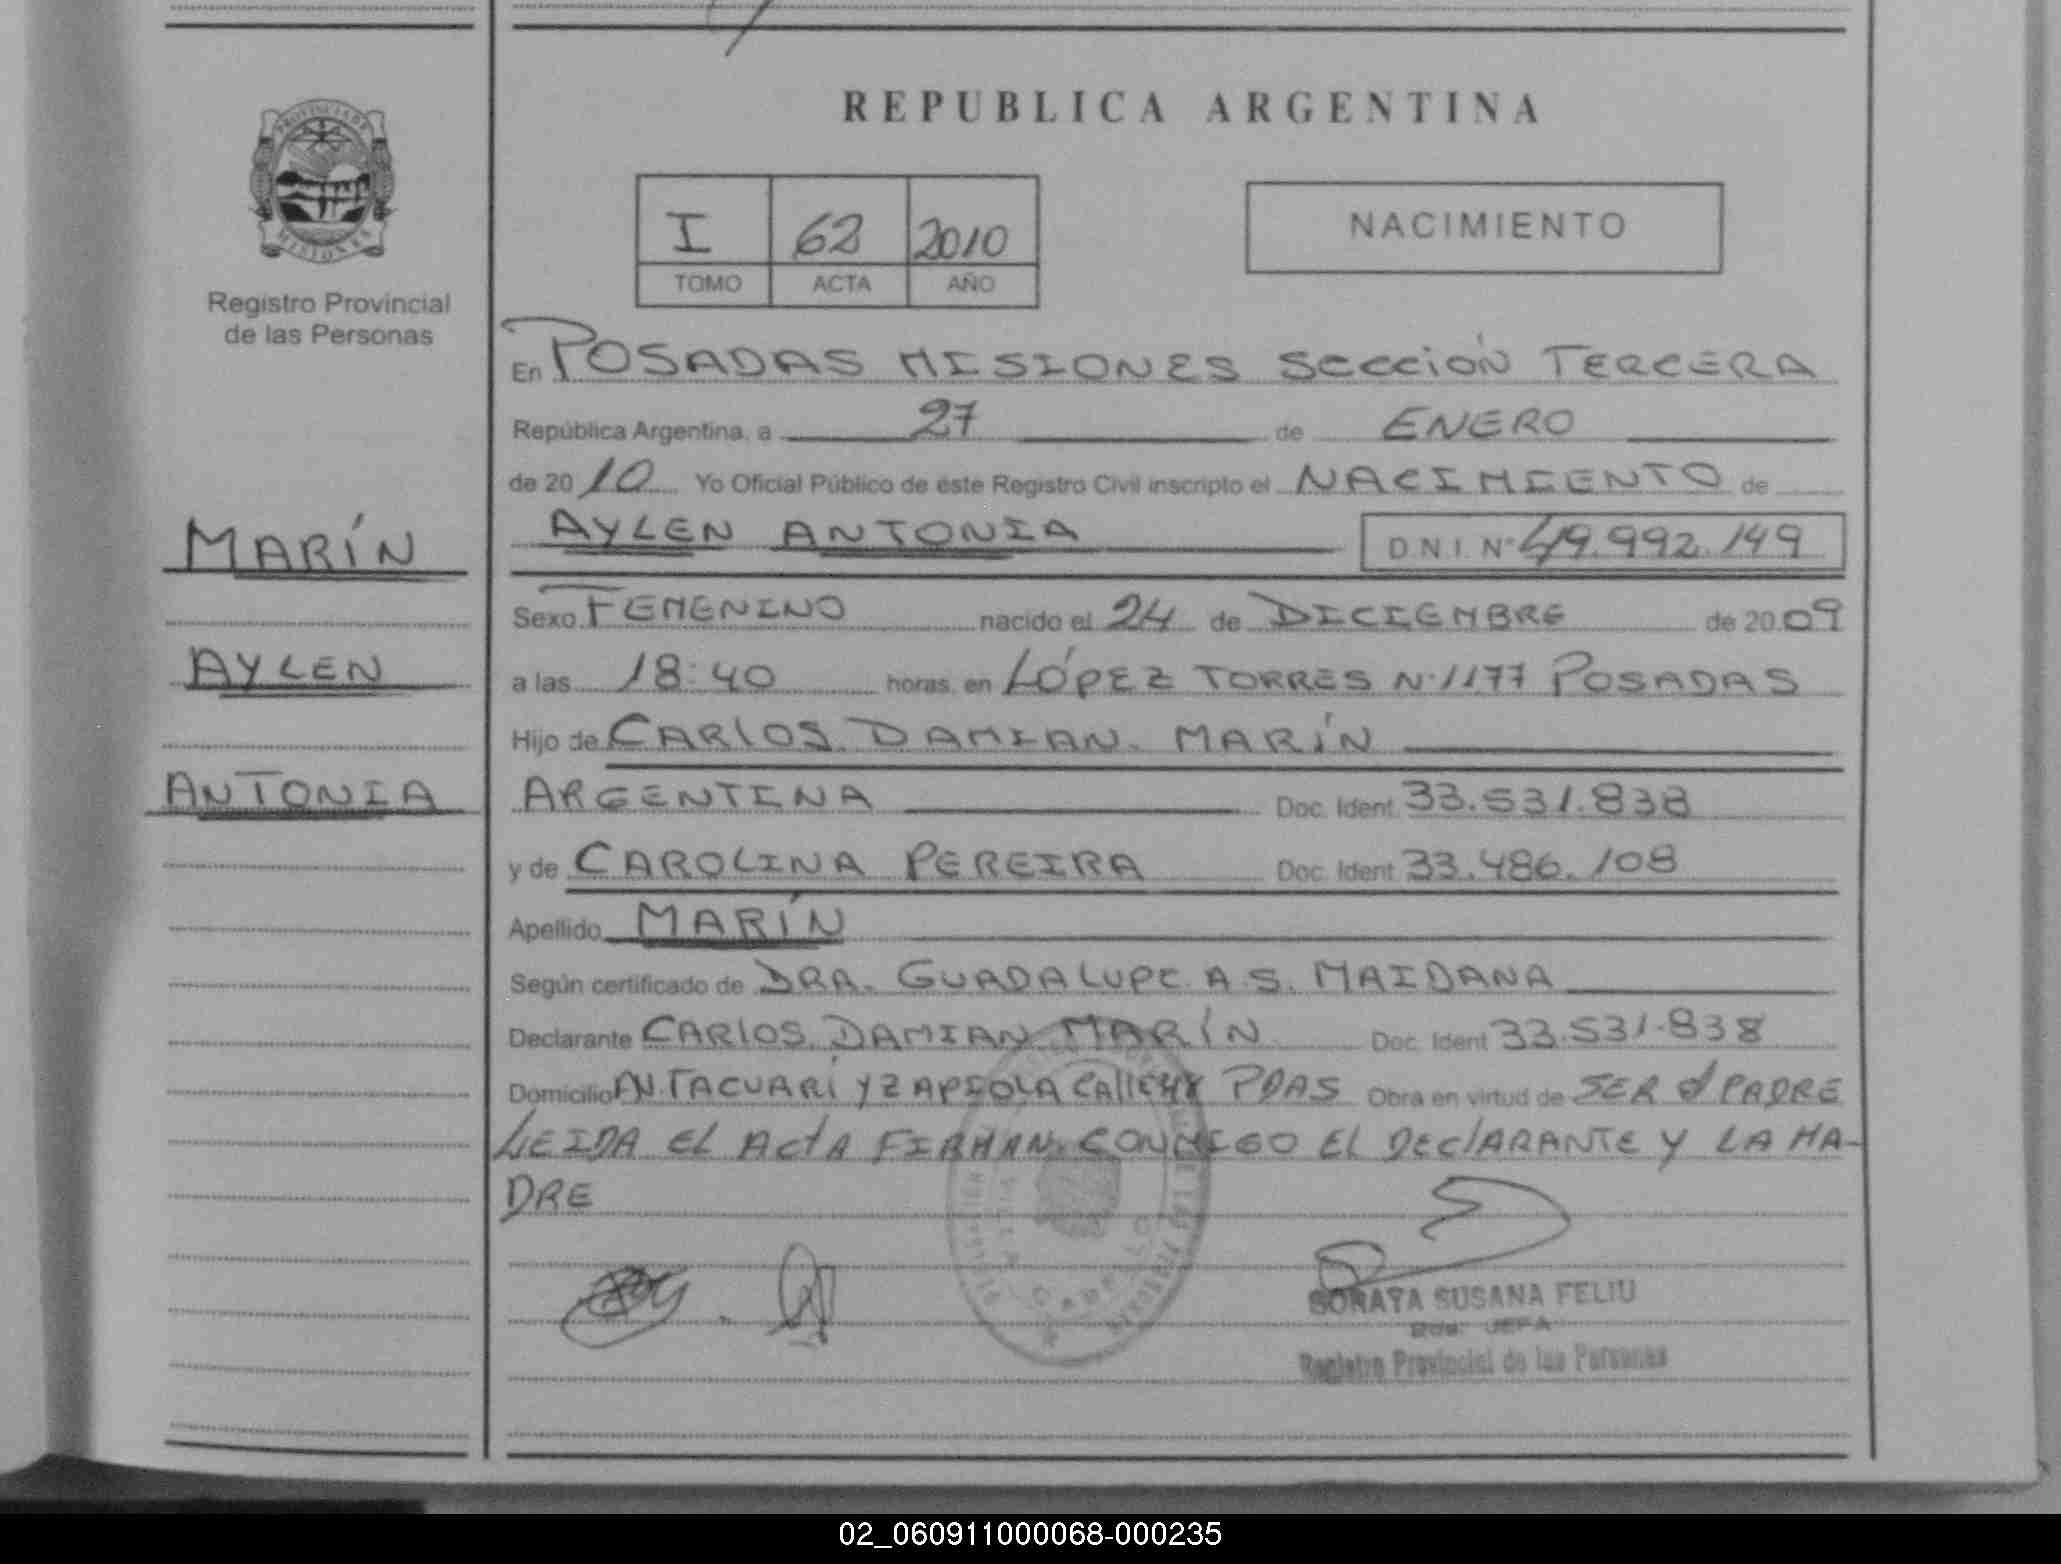 REPUBLICA ARGENTINA
PROVINCIA DE MISIONES
Registro Provincial
de las Personas
I 62 2010
TOMO ACTA AÑO
NACIMIENTO
En POSADAS MISIONES Sección TERCERA
República Argentina, a 27 de ENERO
de 20 10 Yo Oficial Público de este Registro Civil inscripto el NACIMIENTO de
MARÍN
AYLEN
ANTONIA
AYLEN ANTONIA D.N.I. Nº 49.992.149
Sexo FEMENINO nacido el 24 de DICIEMBRE de 20 09
a las 18:40 horas, en LÓPEZ TORRES N·1177 POSADAS
Hijo de CARLOS. DAMIAN. MARÍN
ARGENTINA Doc. Ident. 33.531.838
y de CAROLINA PEREIRA Doc. Ident 33.486.108
Apellido MARÍN
Según certificado de DRA. GUADALUPE. A.S. MAIDANA
Declarante CARLOS. DAMIAN MARÍN Doc. Ident 33.531.838
Domicilio AV. TACUARÍ Y ZAPIOLA CAlle PDAS Obra en virtud de SER el PADRE
LEIDA EL ActA FIRMAN. CONMIGO EL DEClARANTE Y LA MA-
DRE
SORAYA SUSANA FELIU
JEFA
Registro Provincial de las Personas
02_060911000068-000235